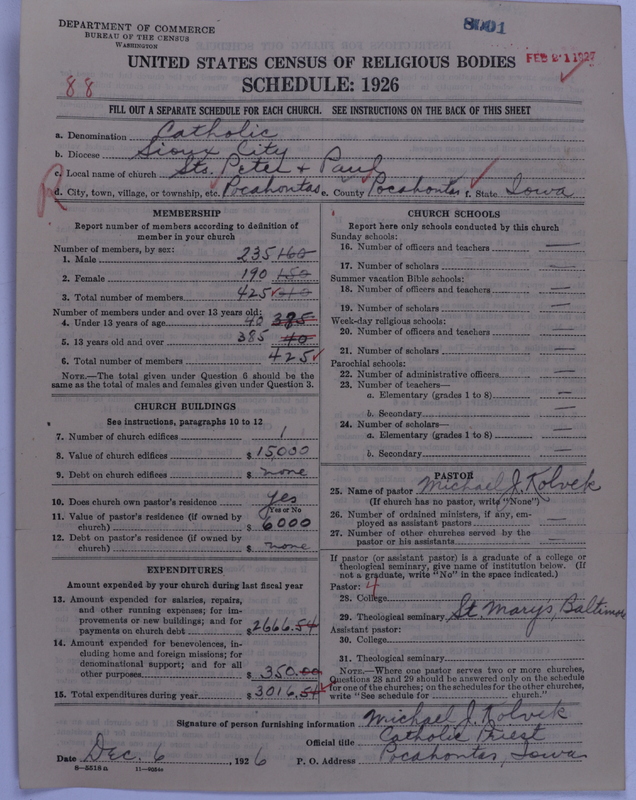 DEPARTMENT OF COMMERCE
BUREAU OF THE CENSUS
WASHINGTON
8001
FEB 21 1927
UNITED STATES CENSUS OF RELIGIOUS BODIES
SCHEDULE: 1926
88
FILL OUT A SEPARATE SCHEDULE FOR EACH CHURCH. SEE INSTRUCTIONS ON THE BACK OF THIS SHEET
a. Denomination Catholic
b. Diocese Sioux City
c. Local name of church Sts. Peter + Paul
d. City, town, village, or township, etc. Pocahontas e. County Pocahontas f. State Iowa
R
MEMBERSHIP
Report number of members according to definition of
member in your church
Number of members, by sex:
1. Male 235 160
2. Female 190 150
3. Total number of members 425 310
Number of members under and over 13 years old:
4. Under 13 years of age 40 385
5. 13 years old and over 385 40
6. Total number of members 425
NOTE.—The total given under Question 6 should be the
same as the total of males and females given under Question 3.
CHURCH BUILDINGS
See instructions, paragraphs 10 to 12
7. Number of church edifices 1
8. Value of church edifices $ 15,000
9. Debt on church edifices $ none
10. Does church own pastor's residence Yes
(Yes or No)
11. Value of pastor's residence (if owned by
church) $ 6000
12. Debt on pastor's residence (if owned by
church) $ none
EXPENDITURES
Amount expended by your church during last fiscal year
13. Amount expended for salaries, repairs,
and other running expenses; for im-
provements or new buildings; and for
payments on church debt $ 2666.54
14. Amount expended for benevolences, in-
cluding home and foreign missions; for
denominational support; and for all
other purposes $ 350.00
15. Total expenditures during year $ 3016.54
CHURCH SCHOOLS
Report here only schools conducted by this church
Sunday schools:
16. Number of officers and teachers —
17. Number of scholars —
Summer vacation Bible schools:
18. Number of officers and teachers —
19. Number of scholars —
Week-day religious schools:
20. Number of officers and teachers —
21. Number of scholars —
Parochial schools:
22. Number of administrative officers —
23. Number of teachers—
a. Elementary (grades 1 to 8) —
b. Secondary —
24. Number of scholars—
a. Elementary (grades 1 to 8) —
b. Secondary —
PASTOR
25. Name of pastor Michael J. Kolvek
(If church has no pastor, write "None")
26. Number of ordained ministers, if any, em-
ployed as assistant pastors —
27. Number of other churches served by the
pastor or his assistants —
If pastor (or assistant pastor) is a graduate of a college or
theological seminary, give name of institution below. (If
not a graduate, write "No" in the space indicated.)
Pastor: 4
28. College
29. Theological seminary St. Mary's, Baltimore
Assistant pastor:
30. College
31. Theological seminary
NOTE.—Where one pastor serves two or more churches,
Questions 28 and 29 should be answered only on the schedule
for one of the churches; on the schedules for the other churches,
write "See schedule for church."
Signature of person furnishing information Michael J. Kolvek
Official title Catholic Priest
Date Dec. 6, 1926 P. O. Address Pocahontas, Iowa
8-5518a